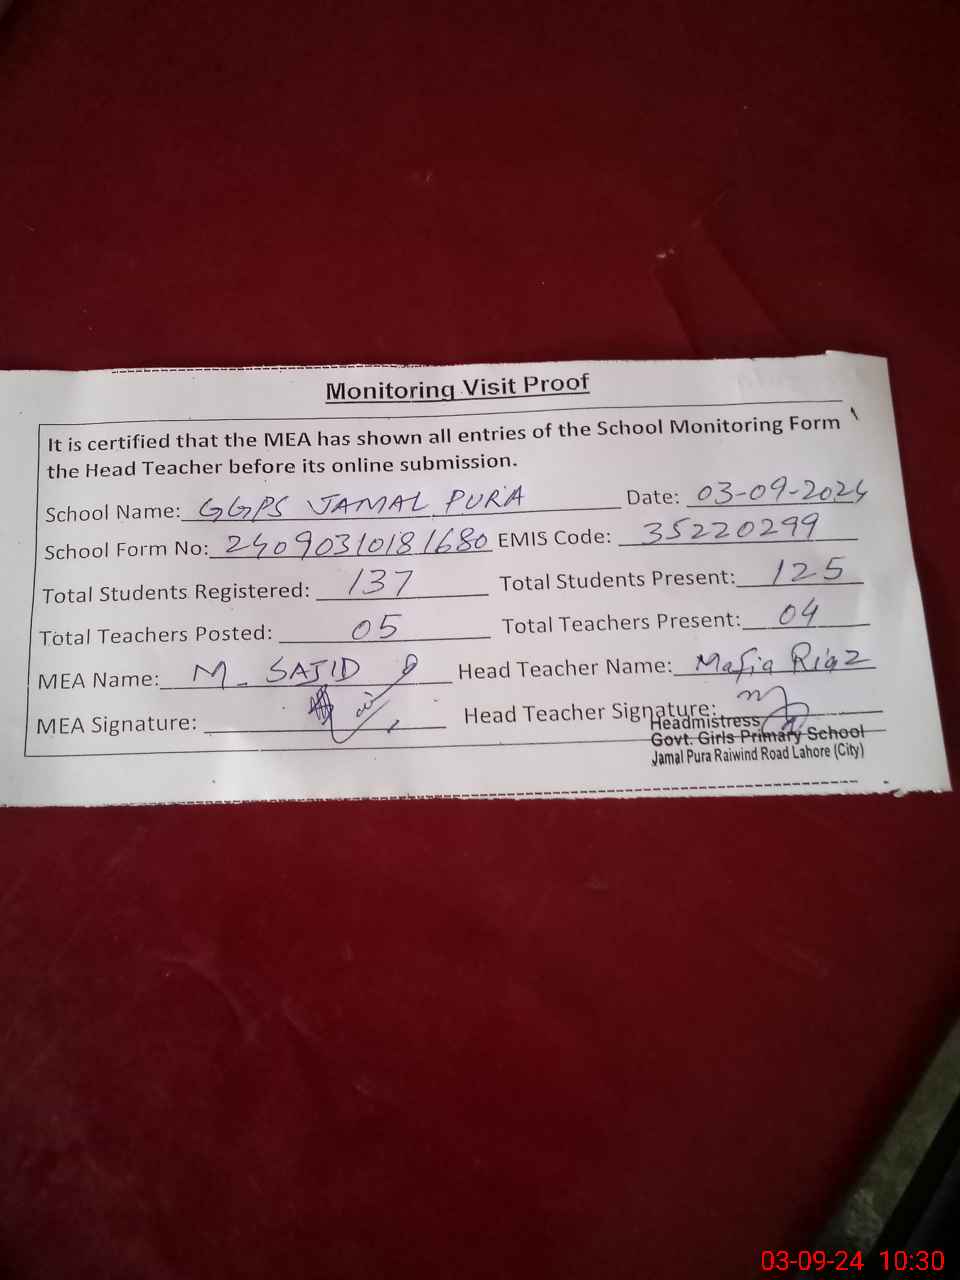 Monitoring Visit Proof
It is certified that the MEA has shown all entries of the School Monitoring Form
the Head Teacher before its online submission.
School Name: GGPS JAMAL PURA Date: 03-09-2024
School Form No: 2409031018 1680 EMIS Code: 35220299
Total Students Registered: 137 Total Students Present: 125
Total Teachers Posted: 05 Total Teachers Present: 04
MEA Name: M. SAJID Head Teacher Name: Riaz
MEA Signature: Head Teacher Signature:
Headmistress
Govt. Girls Primary School
Jamal Pura Raiwind Road Lahore (City)
03-09-24 10:30